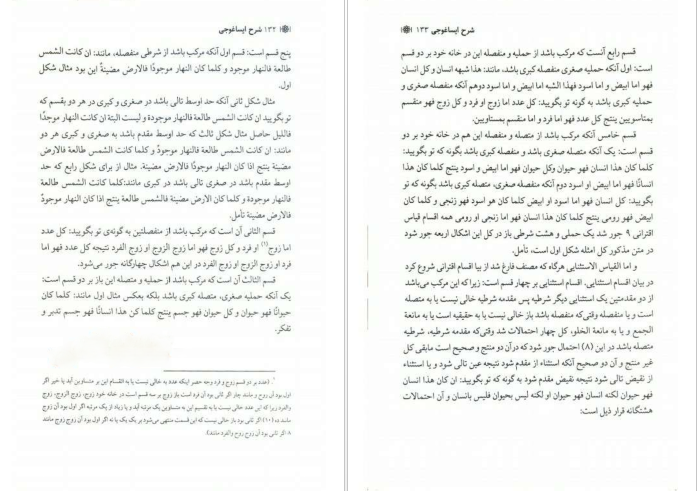 ۱۳۲ شرح ایساغوجی
پنج قسم است: قسم اول آنکه مرکب باشد از شرطی منفصله، مانند: ان کانت الشمس
طالعة فالنهار موجود و کلما کان النهار موجودًا فالارض مضینةٌ این بود مثال شکل
اول.
مثال شکل ثانی آنکه حد اوسط تالی باشد در صغری و کبری در هر دو بقسم که
تو بگویید ان کانت الشمس طالعة فالنهار موجودة و لیست البتة ان کانت النهار موجدًا
فاللیل حاصل مثال شکل ثالث که حد اوسط مقدم باشد به صغری و کبری هر دو
مانند: ان کانت الشمس طالعة فالنهار موجودٌ و کلما کانت الشمس طالعة فالارض
مضینة ینتج اذا کان النهار موجودًا فالارض مضینة. مثال از برای شکل رابع که حد
اوسط مقدم باشد در صغری تالی باشد در کبری مانند:کلما کانت الشمس طالعة
فالنهار موجود و کلما کان الارض مضینة فالشمس طالعة ینتج اذا کان النهار موجودٌ
فالارض مضینة تأمل.
قسم الثانی آن است که مرکب باشد از منفصلتین به گونه‌ی تو بگویید: کل عدد
اما زوج(۱) او فرد و کل زوج فهو اما زوج الزوج او زوج الفرد نتیجه کل عدد فهو اما
فرد او زوج الزوج او زوج الفرد در این هم اشکال چهارگانه جور می‌شود.
قسم الثالث آن است که مرکب باشد از حملیه و متصله این باز بر دو قسم است:
یک آنکه حملیه صغری، متصله کبری باشد بلکه بعکس مثال اول مانند: کلما کان
حیوانًا فهو حیوان و کل حیوان فهو جسم ینتج کلما کن هذا انسانًا فهو جسم تدبر و
تفکر.
(عدد بر دو قسم زوج و فرد وجه حصر اینکه عدد به خالی نیست یا به القسام این بر متساوین آید یا خیر اگر
اول بود آن زوج و مانند چار اگر ثانی بود آن فرد است باز زوج بر سه قسم است در خانه خود زوج، زوج الزوج، زوج
والفرد زیرا که این عدد خالی نیست یا به تقسیم این به متساوین یک مرتبه آید و یا زیاد از یک مرتبه اگر اول بود آن زوج
مانند ده (۱۰) اگر ثانی بود باز خالی نیست که این قسمت منتهی می‌شود بر یک یا نه اگر اول بود آن زوج زوج مانند
۸ اگر ثانی بود آن زوح روح والفرد مانند).
شرح ایساغوجی ۱۳۳
قسم رابع آنست که مرکب باشد از حملیه و منفصله این در خانه خود بر دو قسم
است: اول آنکه حملیه صغری منفصله کبری باشد، مانند: هذا شیهه انسان و کل انسان
فهو اما ابیض و اما اسود فهذا الشبه اما ابیض و اما اسود دوهم آنکه منفصله صغری و
حملیه کبری باشد به گونه تو بگویید: کل عدد اما زوج او فرد و کل زوج فهو منقسم
بمتاسویین ینتج کل عدد فهو اما فرد و اما منقسم بمستاویین.
قسم خامس آنکه مرکب باشد از متصله و منفصله این هم در خانه خود بر دو
قسم است: یک آنکه متصله صغری باشد و منفصله کبری باشد بگونه که تو بگویید:
کلما کان هذا انسان فهو حیوان وکل حیوان فهو اما ابیض و اسود ینتج کلما کان هذا
انسانًا فهو اما ابیض او اسود دوم آنکه منفصله صغری، متصله کبری باشد بگونه که تو
بگویید: کل انسان فهو اما اسود او ابیض کلما کان هو اسود فهو زنجی و کلما کان
ابیض فهو رومی ینتج کلما کان هذا انسان فهو اما زنجی او رومی همه اقسام قیاس
اقترانی ۹ جور شد یک حملی و هشت شرطی باز در کل این اشکال اربعه جور شود
در متن مذکور کل امثله شکل اول است، تأمل.
و اما القیاس الاستثنایی هرگاه که مصنف فارغ شد از بیا اقسام اقترانی شروع کرد
در بیان اقسام استثنایی. اقسام استثنایی بر چهار قسم است: زیرا که این مرکب می‌باشد
از دو مقدمتین یک استثنایی دیگر شرطیه پس مقدمه شرطیه خالی نیست یا به متصله
است و یا منفصله وقتی‌که منفصله باشد باز خالی نیست یا به حقیقیه است یا به مانعة
الجمع و یا به مانعة الخلو، کل چهار احتمالات شد وقتی‌که مقدمه شرطیه، شرطیه
متصله باشد در این (۸) احتمال جور شود که‌درآن دو منتج و صحیح است مابقی کل
غیر منتج و آن دو صحیح آنکه استثناء از مقدم شود نتیجه عین تالی شود و یا استثناء
از نقیض تالی شود نتیجه نقیض مقدم شود به گونه که تو بگویید: ان کان هذا انسان
فهو حیوان لکنه انسان فهو حیوان او لکنه لیس بحیوان فلیس بانسان و آن احتمالات
هشتگانه قرار ذیل است: